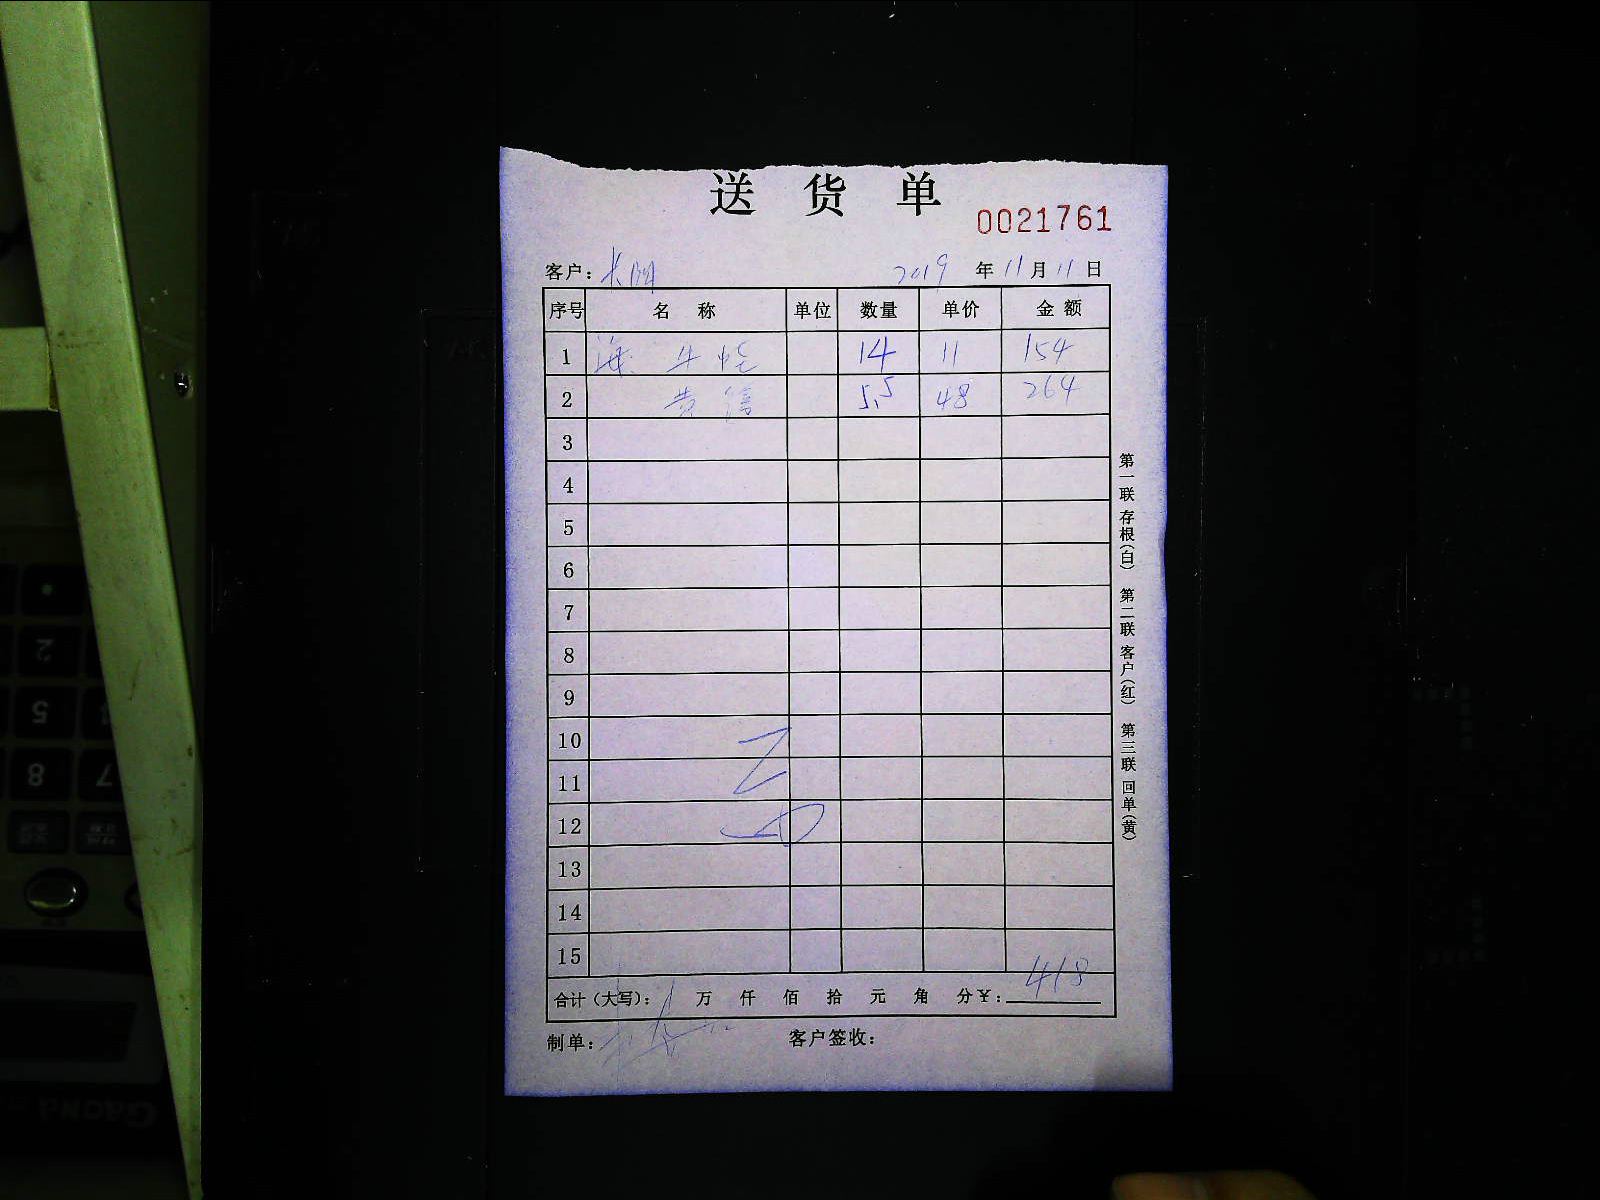 送 货 单
0021761
客户： 2019 年 11 月 11 日
序号 名 称 单位 数量 单价 金 额
1 海 14 11 154
2 黄 5.5 48 264
3
4
5
6
7
8
9
10
11
12
13
14
15
合计（大写）： 万 仟 佰 拾 元 角 分￥：418
制单： 客户签收：
第一联 存根（白） 第二联 客户（红） 第三联 回单（黄）
2
5
8
7